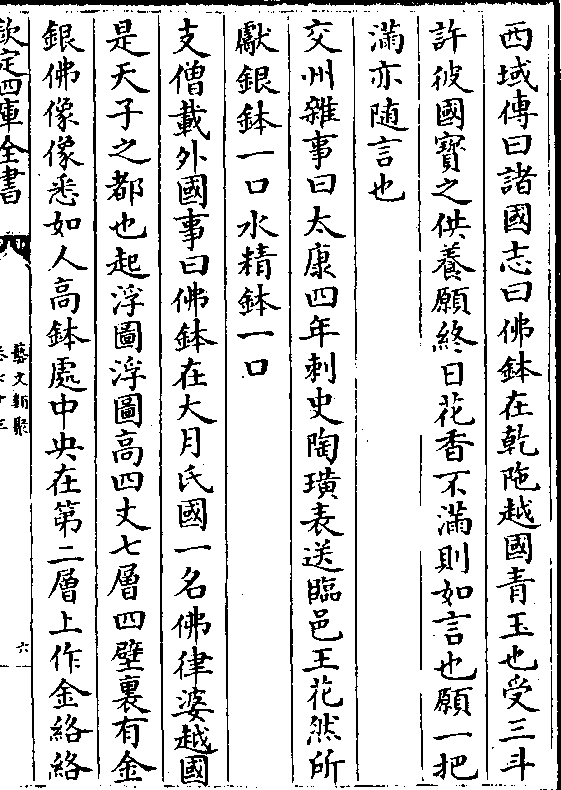 西域傳曰諸國志曰佛鉢在乾陁越國青玉也受三斗
許彼國寶之供養願終日花香不滿則如言也願一把
滿亦随言也
交州雜事曰太康四年刺史陶璜表送臨邑王花然所
獻銀鉢一口水精鉢一口
支僧載外國事曰佛鉢在大月氏國一名佛律婆越國
是天子之都也起浮圖浮圖高四丈七層四壁裏有金
銀佛像像悉如人高鉢處中央在第二層上作金絡絡
欽定四庫全書
藝文類聚
卷七十三
六